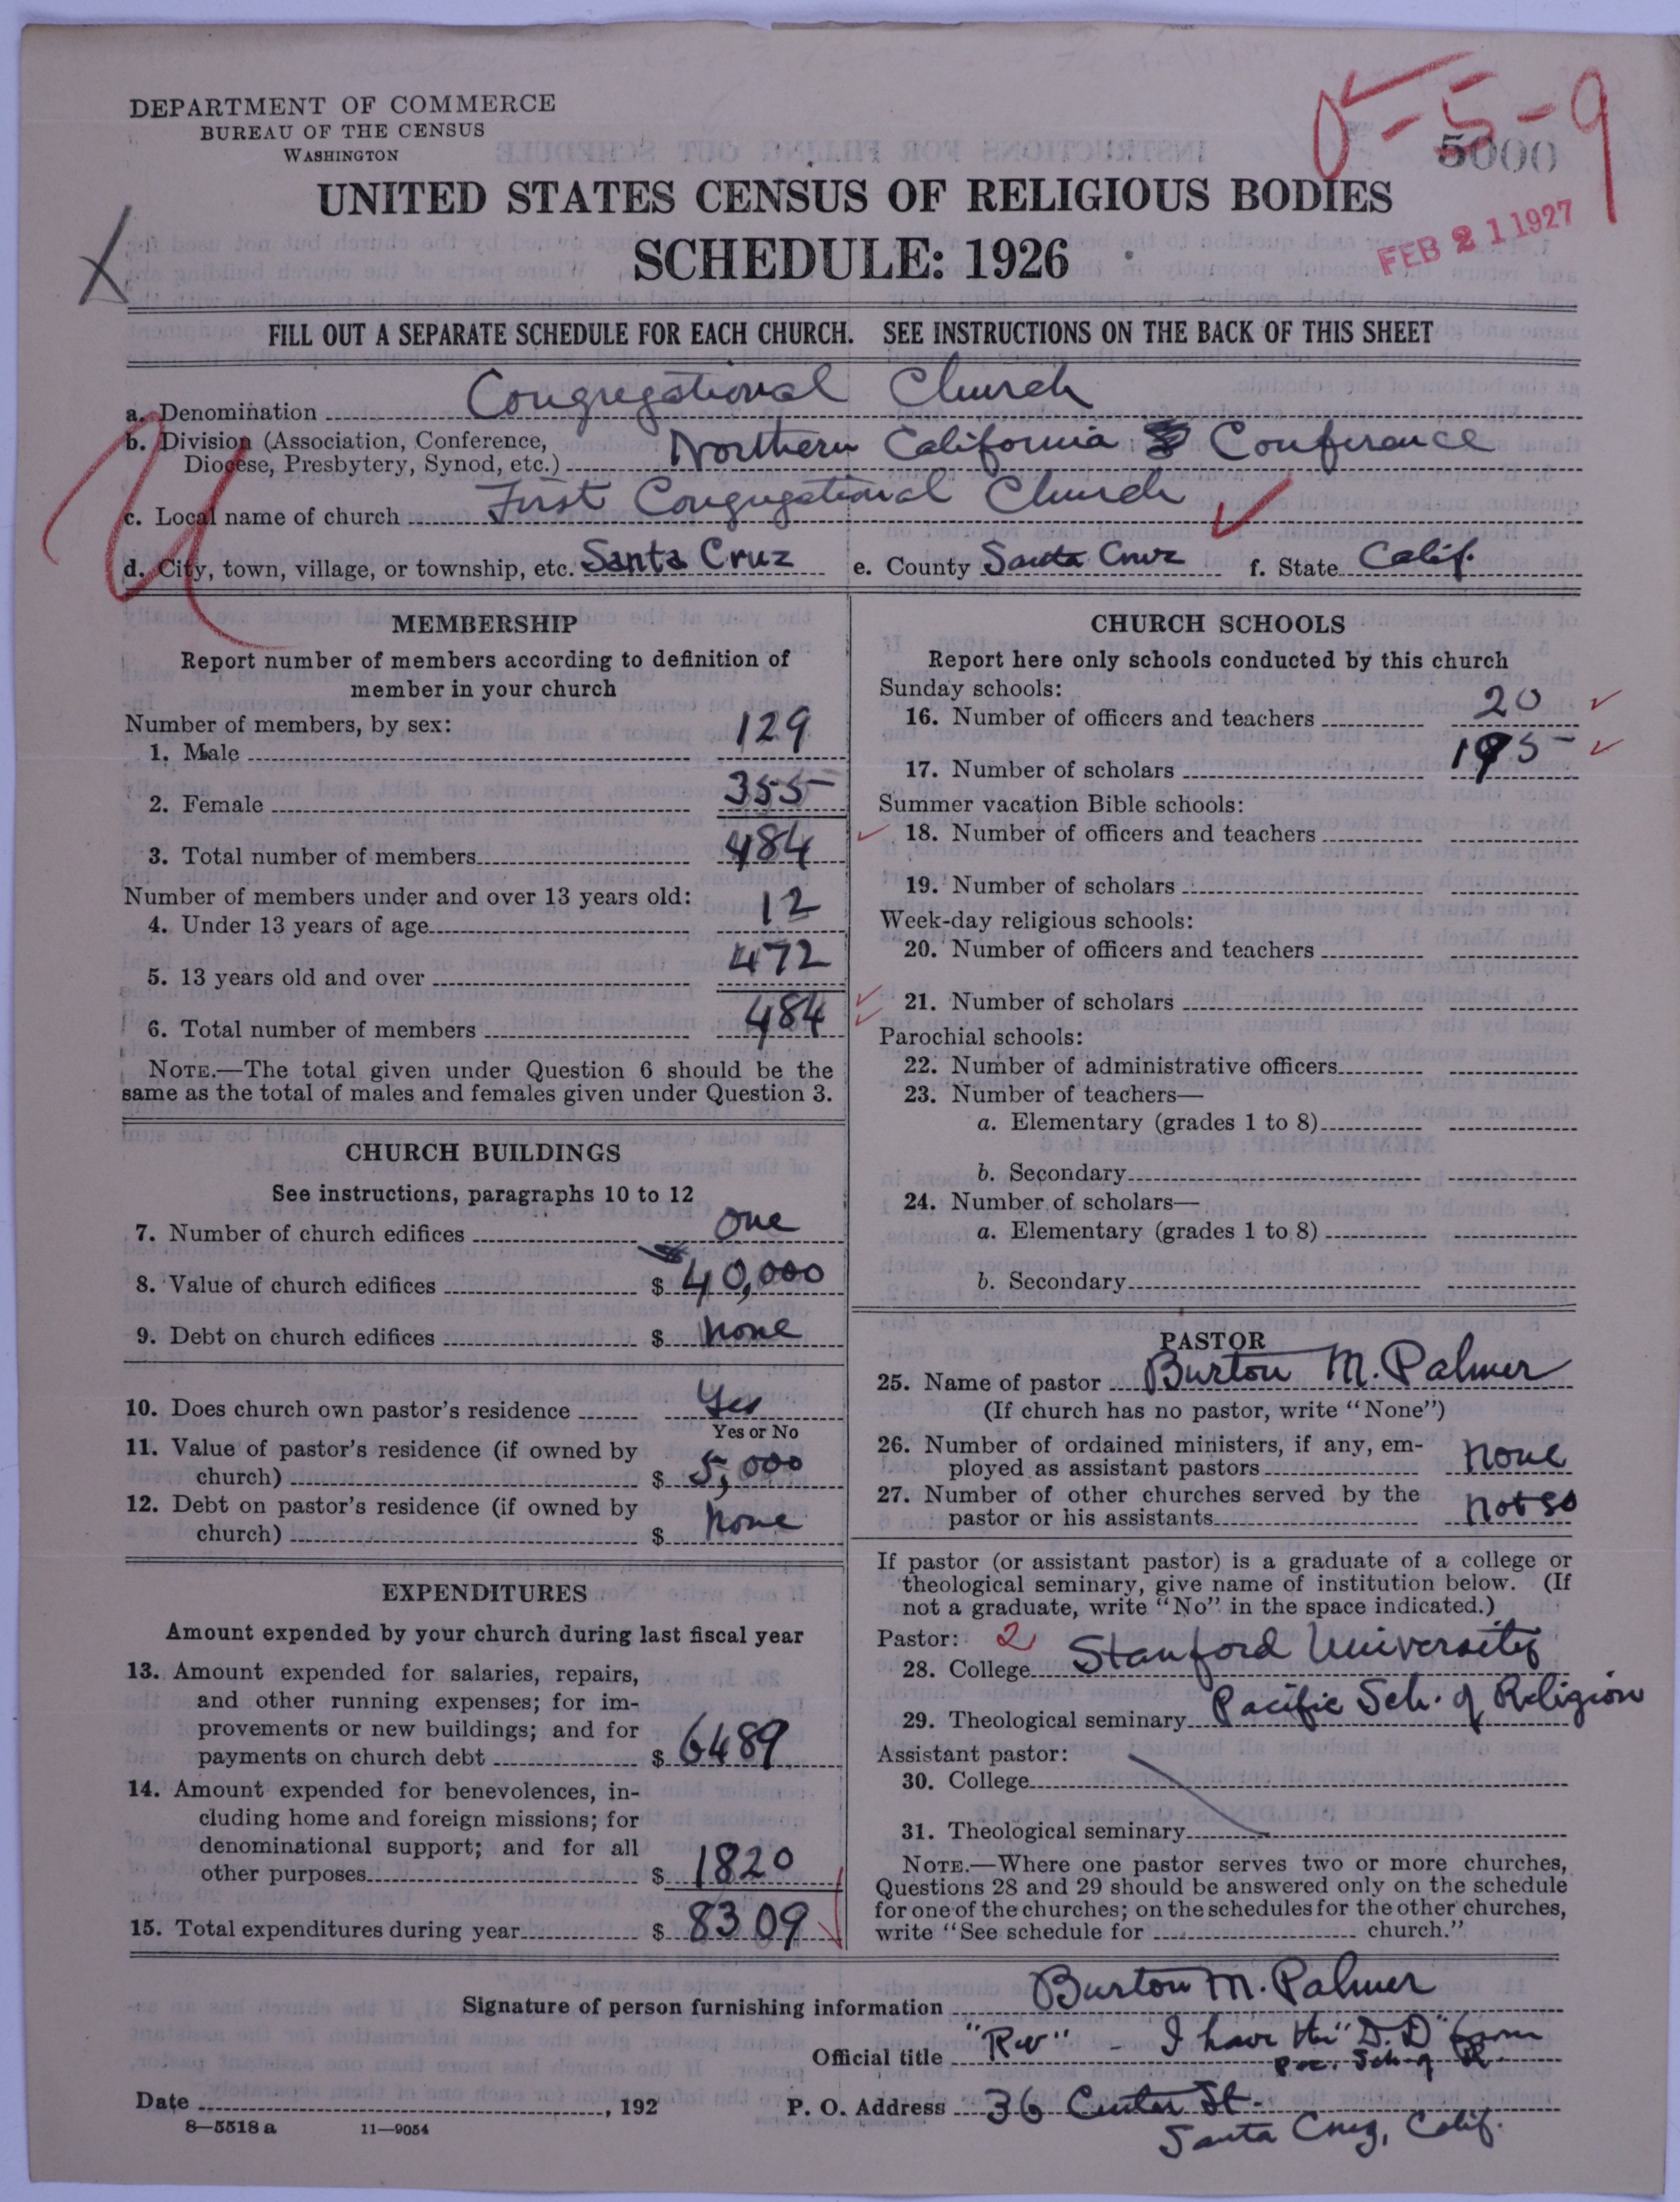 DEPARTMENT OF COMMERCE
BUREAU OF THE CENSUS
WASHINGTON
5-9
5000
UNITED STATES CENSUS OF RELIGIOUS BODIES
SCHEDULE: 1926
FEB 21 1927
X
FILL OUT A SEPARATE SCHEDULE FOR EACH CHURCH. SEE INSTRUCTIONS ON THE BACK OF THIS SHEET
a. Denomination Congregational Church
b. Division (Association, Conference,
Diocese, Presbytery, Synod, etc.) Northern California Conference
c. Local name of church First Congregational Church
d. City, town, village, or township, etc. Santa Cruz e. County Santa Cruz f. State Calif.
U
MEMBERSHIP
Report number of members according to definition of
member in your church
Number of members, by sex:
1. Male 129
2. Female 355
3. Total number of members 484
Number of members under and over 13 years old:
4. Under 13 years of age 12
5. 13 years old and over 472
6. Total number of members 484
NOTE.—The total given under Question 6 should be the
same as the total of males and females given under Question 3.
CHURCH BUILDINGS
See instructions, paragraphs 10 to 12
7. Number of church edifices One
8. Value of church edifices $ 40,000
9. Debt on church edifices $ None
10. Does church own pastor's residence Yes
Yes or No
11. Value of pastor's residence (if owned by
church) $ 5,000
12. Debt on pastor's residence (if owned by
church) $ None
EXPENDITURES
Amount expended by your church during last fiscal year
13. Amount expended for salaries, repairs,
and other running expenses; for im-
provements or new buildings; and for
payments on church debt $ 6489
14. Amount expended for benevolences, in-
cluding home and foreign missions; for
denominational support; and for all
other purposes $ 1820
15. Total expenditures during year $ 8309
CHURCH SCHOOLS
Report here only schools conducted by this church
Sunday schools:
16. Number of officers and teachers 20
17. Number of scholars 195
Summer vacation Bible schools:
18. Number of officers and teachers
19. Number of scholars
Week-day religious schools:
20. Number of officers and teachers
21. Number of scholars
Parochial schools:
22. Number of administrative officers
23. Number of teachers—
a. Elementary (grades 1 to 8)
b. Secondary
24. Number of scholars—
a. Elementary (grades 1 to 8)
b. Secondary
PASTOR
25. Name of pastor Burton M. Palmer
(If church has no pastor, write "None")
26. Number of ordained ministers, if any, em-
ployed as assistant pastors None
27. Number of other churches served by the
pastor or his assistants not so
If pastor (or assistant pastor) is a graduate of a college or
theological seminary, give name of institution below. (If
not a graduate, write "No" in the space indicated.)
Pastor: 2
28. College Stanford University
29. Theological seminary Pacific Sch. of Religion
Assistant pastor:
30. College
31. Theological seminary
NOTE.—Where one pastor serves two or more churches,
Questions 28 and 29 should be answered only on the schedule
for one of the churches; on the schedules for the other churches,
write "See schedule for church."
Signature of person furnishing information Burton M. Palmer
Official title "Rev" - I have the "D.D" from
Pac. Sch. of R.
Date , 192 P. O. Address 36 Center St.
Santa Cruz, Calif.
8—5518 a 11—9054